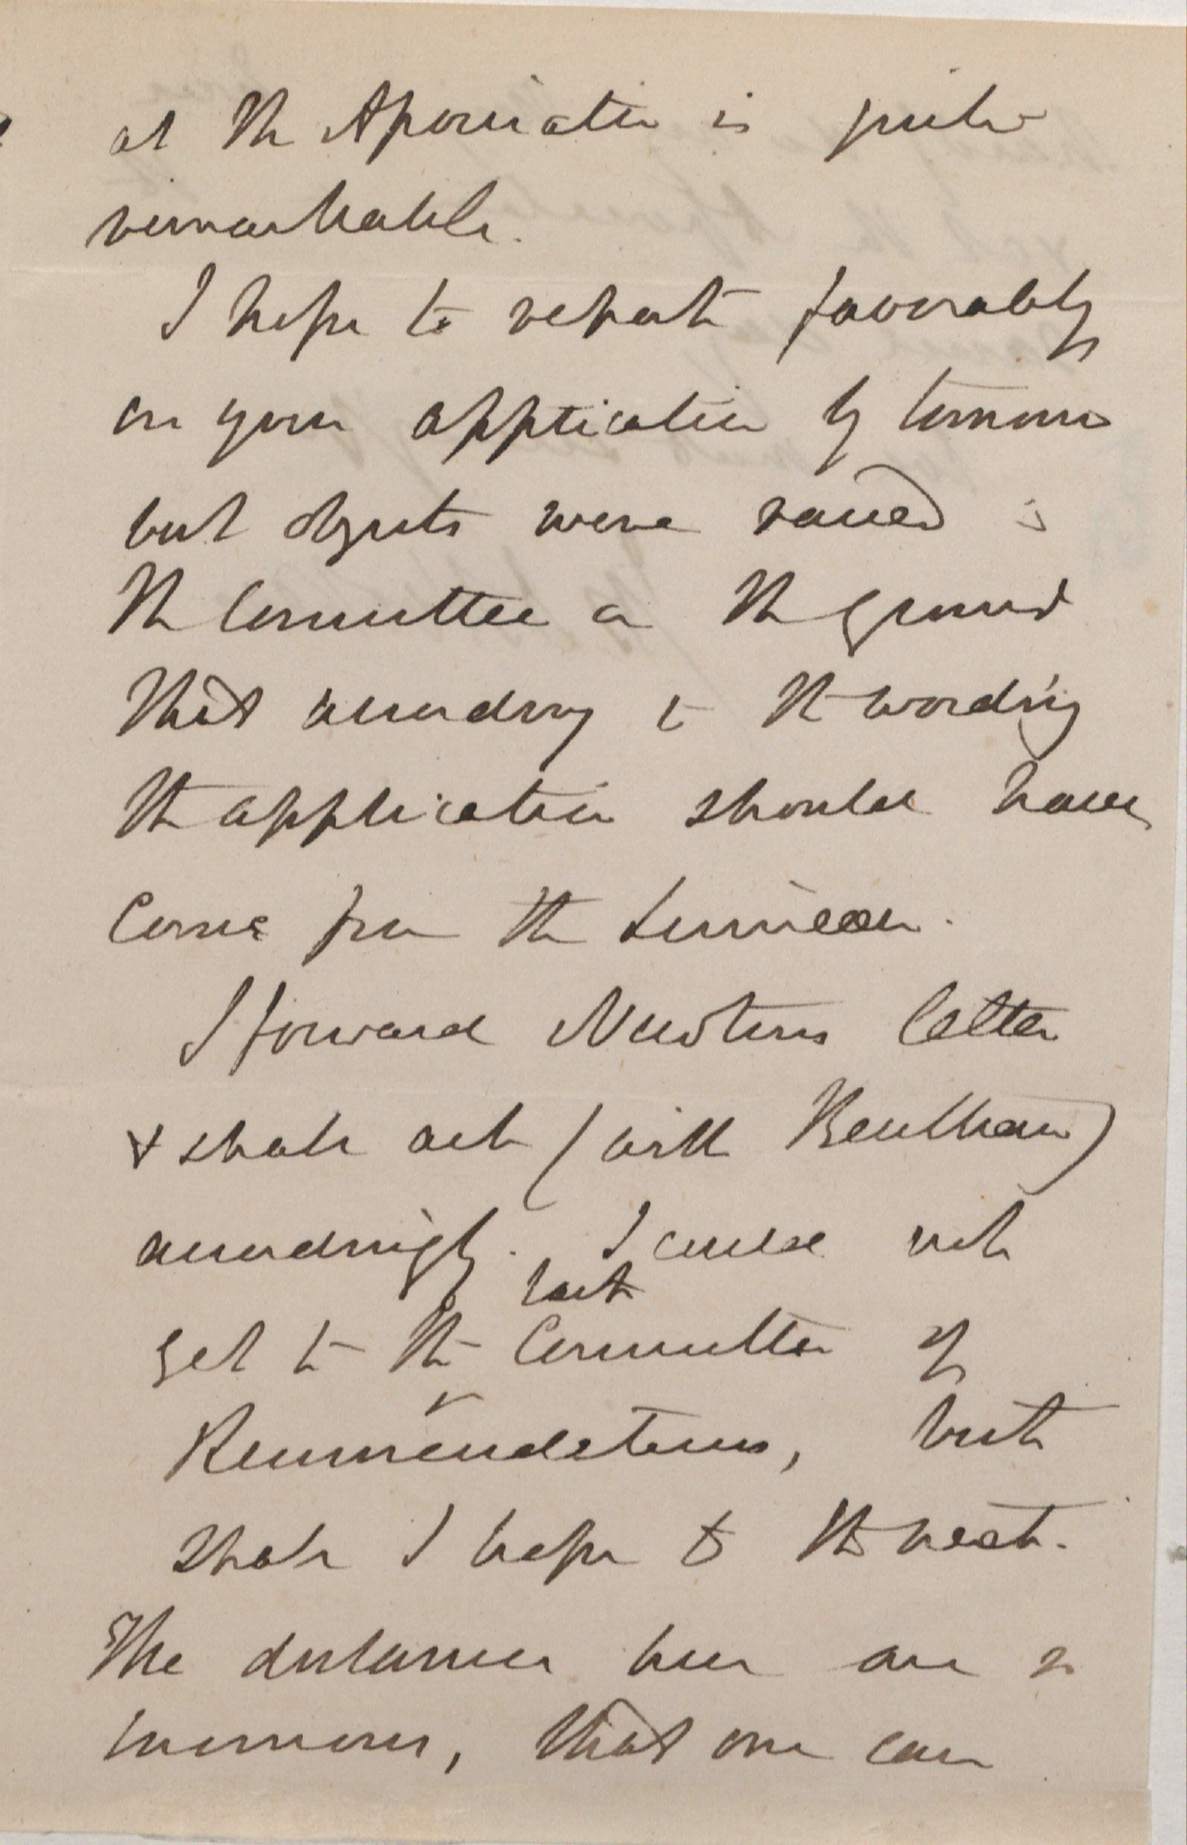 at the Association is quite
remarkable.
I hope to report favorably
on your application by tomorrow
but objects were raised in
the Committee on the ground
that according to the wording
the application should have
come from the Linnean.
I forward Newtons letter
& shall act (with Bentham)
accordingly. I could not
get to the last Committee of
Recommendations, but
shall I hope to the next.
The distances here are so
enormous, that one can